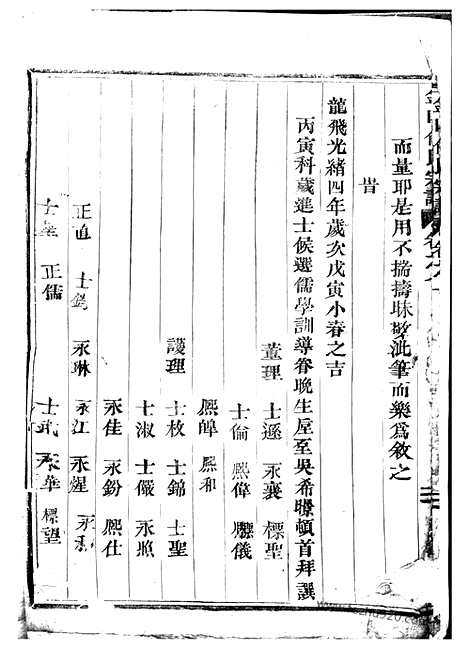 而量耶是用不揣擣昧敬泚筆而樂爲敘之
旹
龍飛光緒四年歲次戊寅小春之吉
丙寅科歲進士候選儒學訓導眷晚生屋至吳希頓首拜譔
董理 士遜 永襄 標聖
士倫 熙偉 驪儀
熙皡 熙和
護理 士枚 士錦 士聖
士淑 士儼 永照
永佳 永鈖 熙仕
正直 士鎬 永琳 永江 永耀
士 正儒 士 永華 標望